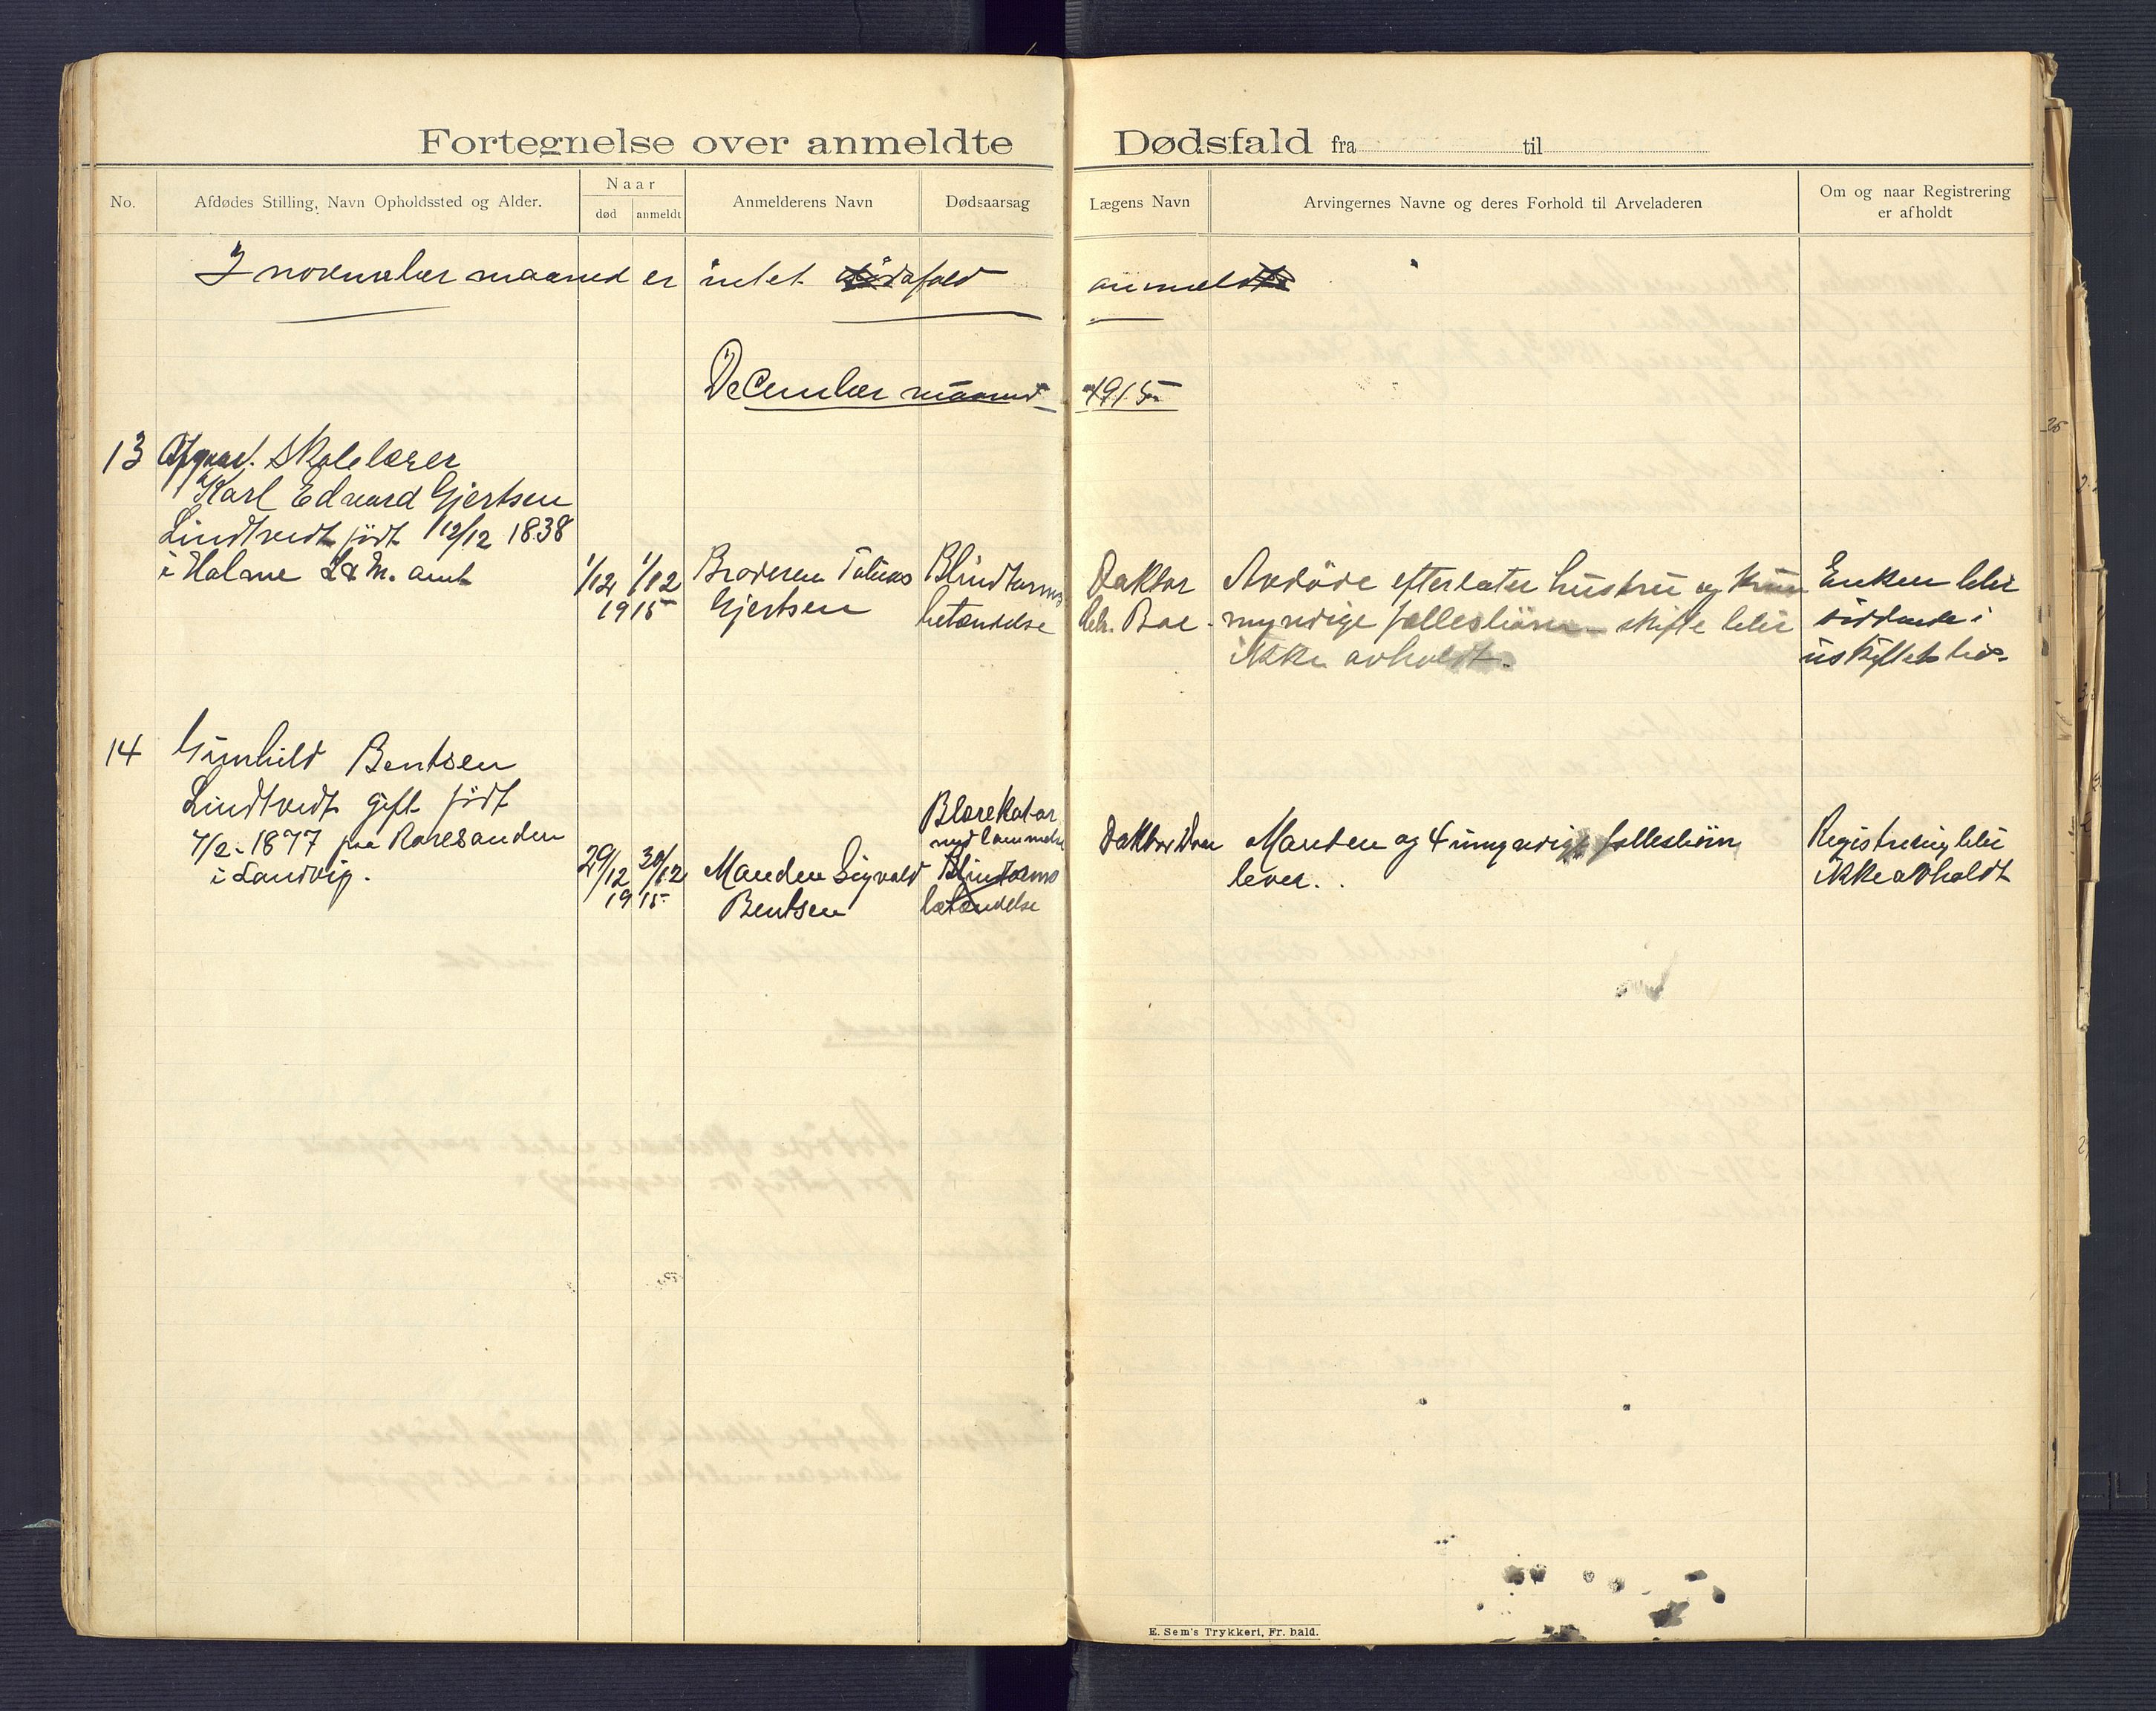 Fortegnelse over anmeldte Dødsfald fra til
No.
Afdødes Stilling, Navn Opholdssted og Alder.
Naar
død
anmeldt
Anmelderens Navn
Dødsaarsag
Lægens Navn
Arvingernes Navne og deres Forhold til Arveladeren
Om og naar Registrering
er afholdt
I november maaned er intet dødsfald anmeldt
December maaned 1915
13
skolelærer
Karl Edvard Gjertsen
Lindtvedt født 12/12 1838
i Halme L & M. amt
1/12 1/12
1915
Broderen
Gjertsen
Blindtarms
betændelse
Doktor
Boe
Avdøde efterlater hustru og kun
myndige fællesbørn skifte blir
ikke avholdt.
Enken blir
siddende i
uskiftet bo.
14
Gunhild Bentsen
Lindtvedt gift født
7/2-1877 paa Roresanden
i Landvig.
29/12 30/12
1915
Manden Sigvald
Bentsen
Blærekatar
Blindtarms
betændelse
Doktor
Manden og 4 umyndige fællesbørn
lever.
Registrering blir
ikke avholdt
E. Sem's Trykkeri, Fr. hald.